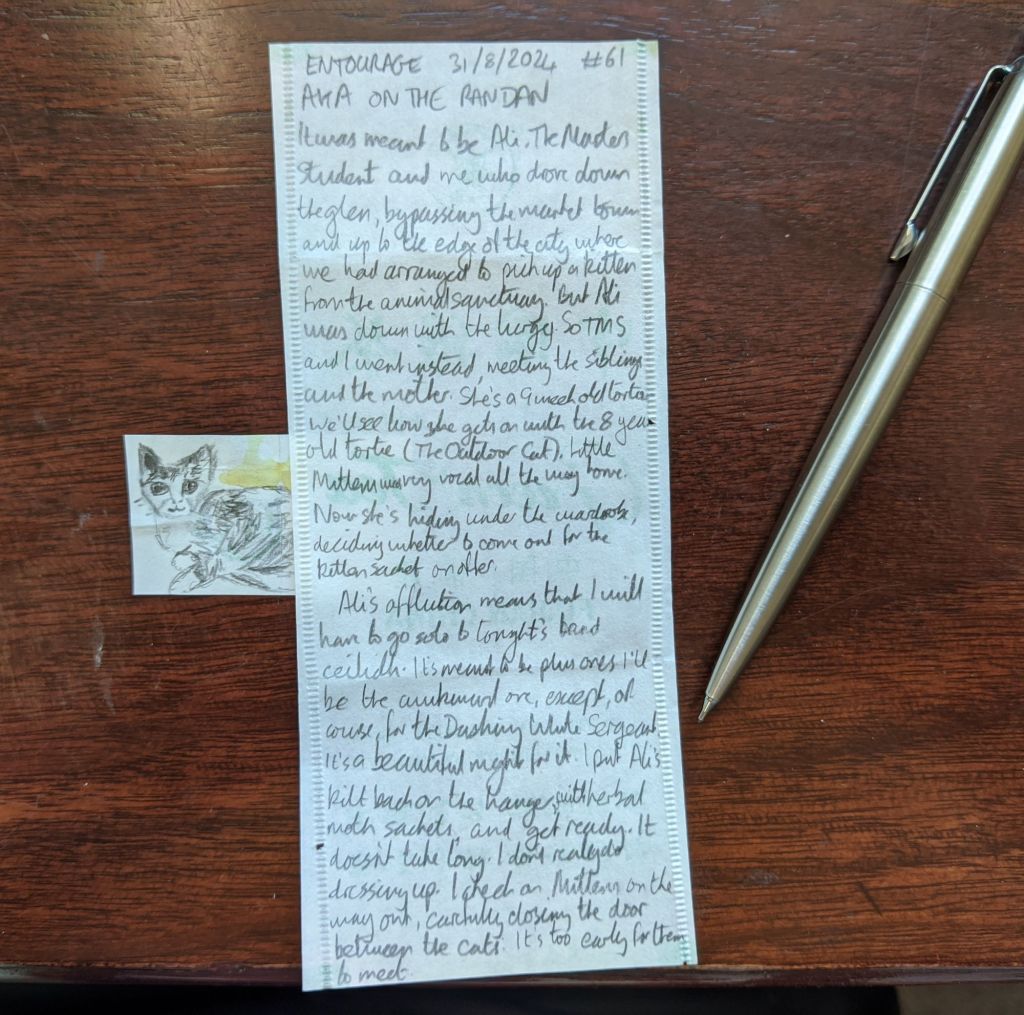 ENTOURAGE 31/8/2024 #61
AKA ON THE RANDAN
It was meant to be Ali, The Masters
Student and me who drove down
the glen, bypassing the market town
and up to the edge of the city where
we had arranged to pick up a kitten
from the animal sanctuary. But Ali
was down with the lurgy. So TMS
and I went instead, meeting the siblings
and the mother. She's a 9 week old tortie
we'll see how she gets on with the 8 year
old tortie (The Outdoor Cat). Little
Mittens was very vocal all the way home.
Now she's hiding under the wardrobe,
deciding whether to come out for the
kitten sachet on offer.
Ali's affliction means that I will
have to go solo to tonight's band
ceilidh. It's meant to be plus ones I'll
be the awkward one, except, of
course, for the Dashing White Sergeant.
It's a beautiful night for it. I put Ali's
kilt back on the hanger, with herbal
moth sachets, and get ready. It
doesn't take long. I don't really do
dressing up. I check on Mittens on the
way out, carefully closing the door
between the cats. It's too early for them
to meet.